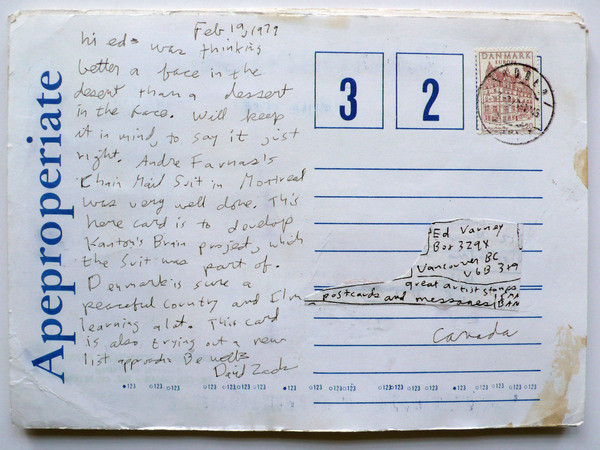 Apeproperiate
Feb 19, 1979
hi ed- was thinking
better a face in the
desert than a dessert
in the face. Will keep
it in mind, to say it just
right. Andre Farnas's
Chain Mail Suit in Montreal
was very well done. This
here card is to develop
Kantor's Brain project, which
the suit was part of.
Denmark is sure a
peaceful country and I'm
learning a lot. This card
is also trying out a new
list Be well
David Zack
3 2
DANMARK
EUROPA
Ed Varney
Box 3294
Vancouver BC
V6B 3X9
great artist stamps
postcards and messages
Canada
123 123 123 123 123 123 123 123 123 123 123 123